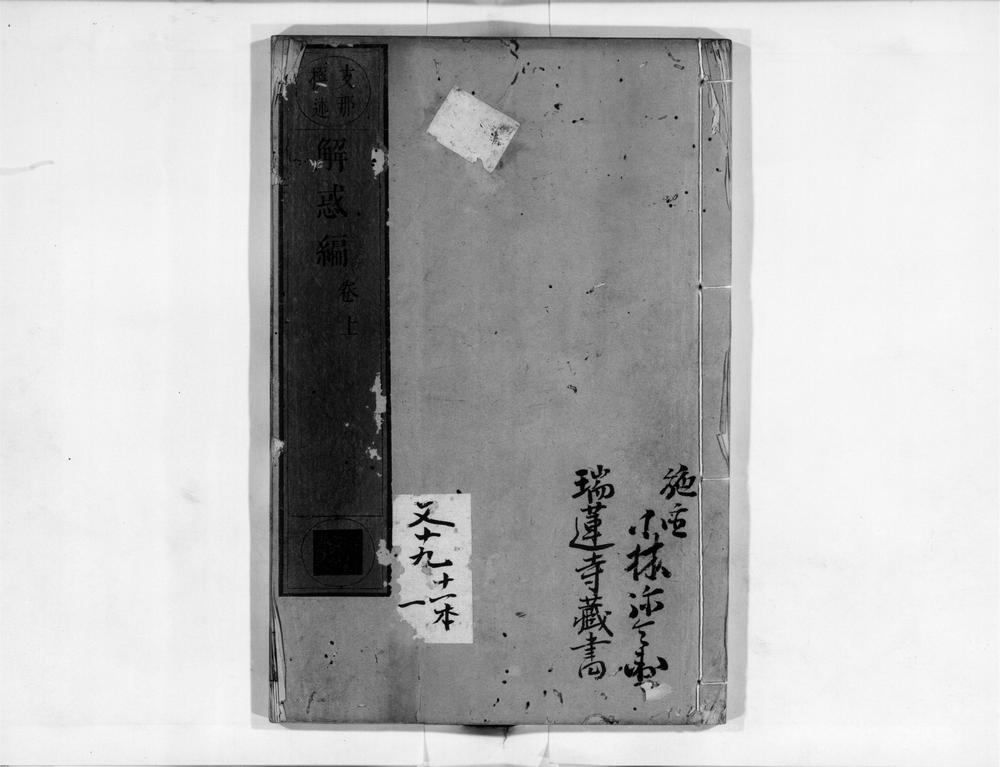 施主
小林弥
瑞蓮寺藏書
支那
撰述
解惑編
卷上
又十九
十一本
一